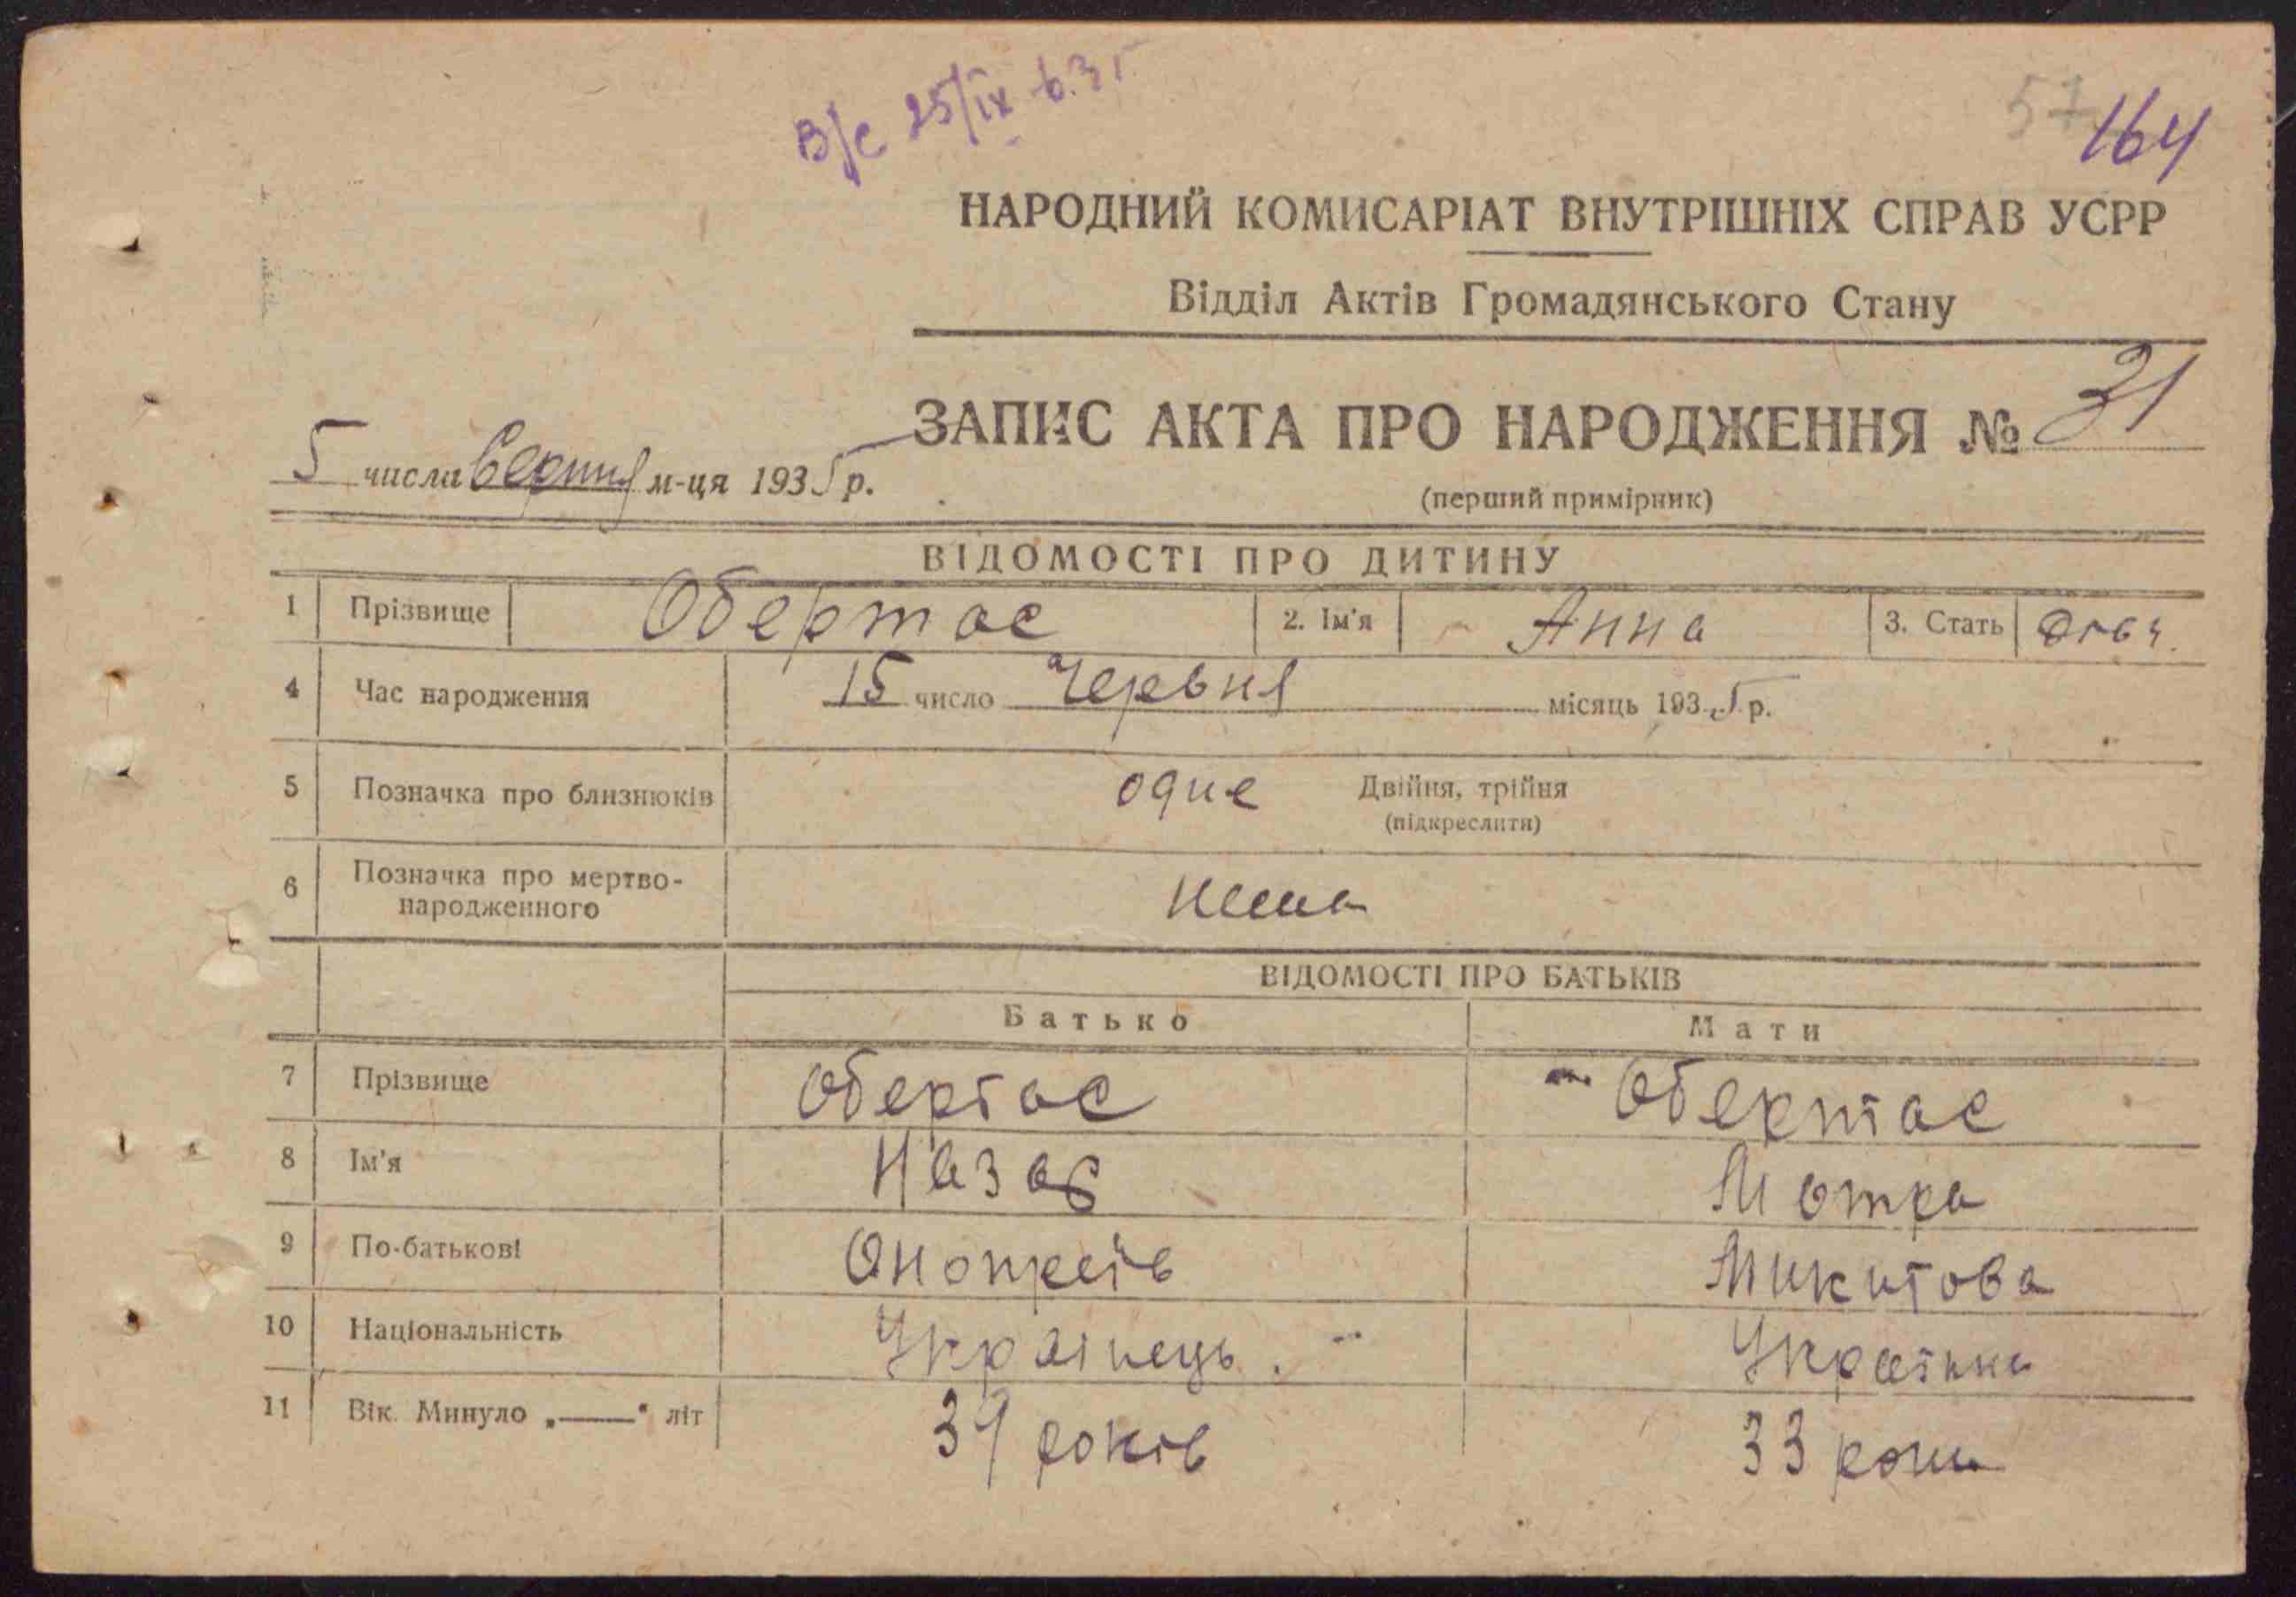 В/С 25/ІХ
57 164
НАРОДНИЙ КОМИСАРІАТ ВНУТРІШНІХ СПРАВ УСРР
Відділ Актів Громадянського Стану
ЗАПИС АКТА ПРО НАРОДЖЕННЯ № 31
5 числа Серпня м-ця 1935 р.
(перший примірник)
ВІДОМОСТІ ПРО ДИТИНУ
1 Прізвище Обертас 2. Ім'я Анна 3. Стать дівч.
4 Час народження 15 число Червня місяць 1935 р.
5 Позначка про близнюків одне Двійня, трійня
(підкреслити)
6 Позначка про мертво-
народженного нема
ВІДОМОСТІ ПРО БАТЬКІВ
Батько Мати
7 Прізвище Обертас Обертас
8 Ім'я Назар Мотра
9 По-батькові Микитова
10 Національність Українець. Українка
11 Вік. Минуло „——“ літ років 33 роки